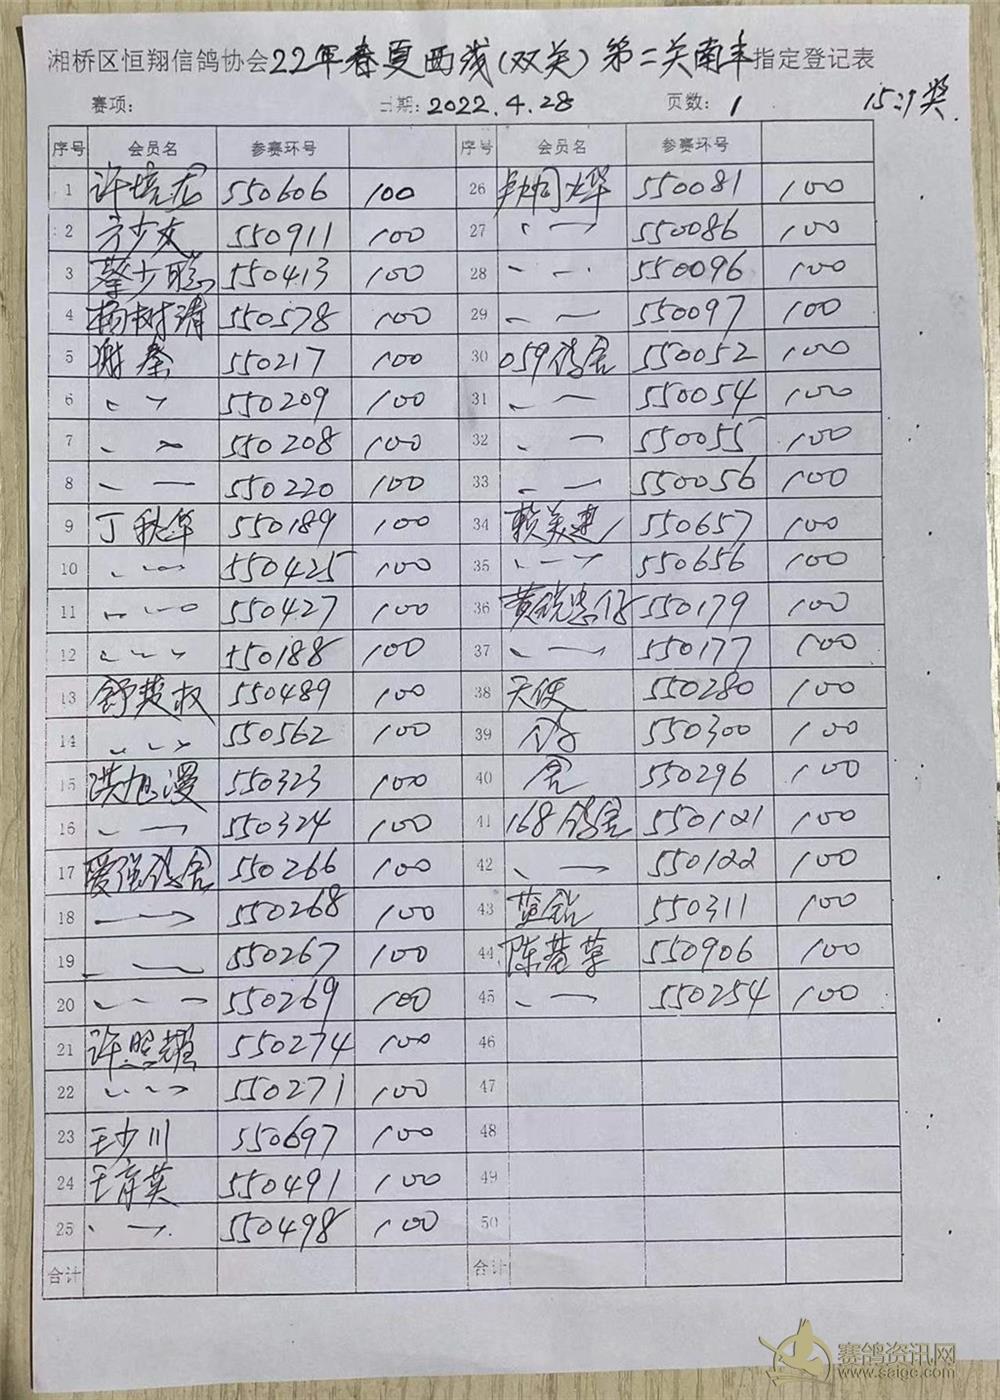 湘桥区恒翔信鸽协会22年春夏西线(双关)第二关南丰指定登记表
赛项: 日期: 2022.4.28 页数: 1 15:1奖.
序号 会员名 参赛环号 序号 会员名 参赛环号
1 许培龙 550606 100 26 550081 100
2 方少文 550911 100 27 550086 100
3 蔡少聪 550413 100 28 550096 100
4 杨树清 550578 100 29 550097 100
5 谢秦 550217 100 30 059鸽舍 550052 100
6 550209 100 31 550054 100
7 550208 100 32 550055 100
8 550220 100 33 550056 100
9 丁秋华 550189 100 34 赖美惠 550657 100
10 550425 100 35 550656 100
11 550427 100 36 黄锐忠 550179 100
12 550188 100 37 550177 100
13 舒楚权 550489 100 38 天使 550280 100
14 550562 100 39 鸽 550300 100
15 洪旭漫 550323 100 40 舍 550296 100
16 550324 100 41 168鸽舍 550121 100
17 爱强鸽舍 550266 100 42 550122 100
18 550268 100 43 蓝钻 550311 100
19 550267 100 44 陈 550906 100
20 550269 100 45 550254 100
21 许照耀 550274 100 46
22 550271 100 47
23 王少川 550697 100 48
24 王育英 550491 100 49
25 550498 100 50
合计 合计
赛鸽资讯网
www.saige.com